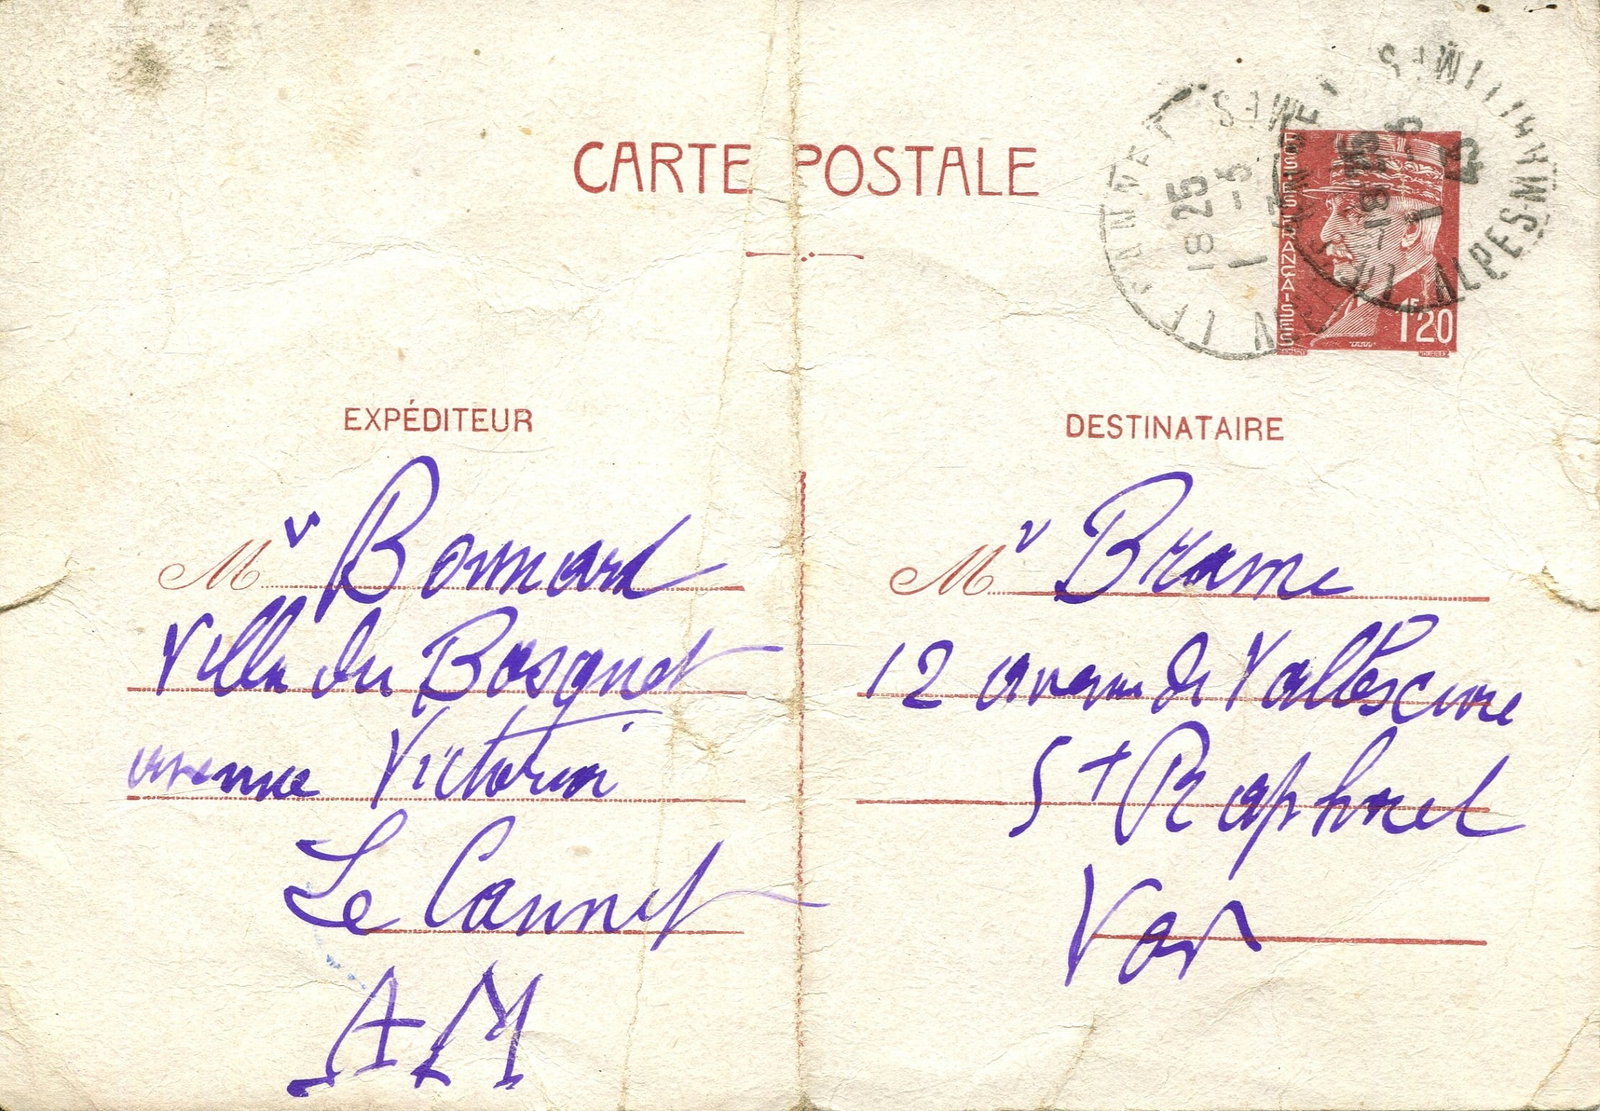 CARTE POSTALE
POSTES FRANÇAISES
1F20
18 25
1 -5
43
LE CANNET
ALPES MARITIMES
EXPÉDITEUR
Mr Bonnard
Villa du Bosquet
avenue Victoria
Le Cannet
AM
DESTINATAIRE
Mr Brame
12 avenue de Valescure
St Raphael
Var